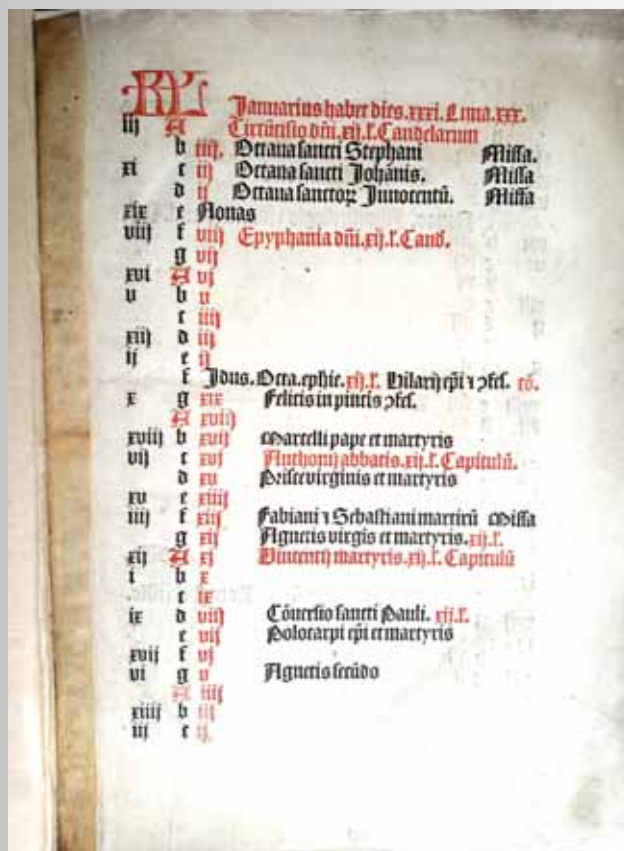 KL Januarius habet dies. xxxi. Luna. xxx.
iij A Circũcisio dñi. xij. l. Candelarum
b iiij. Octaua sancti Stephani Missa.
xi c iij Octaua sancti Johãnis. Missa
d ij Octaua sanctoꝝ Innocentũ. Missa
xix e Nonas
viij f viij Epyphania dñi. xij. l. Cand.
g vij
xvi A vj
v b v
c iiij
xiij d iij
ij e ij
f Idus. Octa. ephie. xij. l. Hilarij epi ⁊ ꝯfes. cõ.
x g xix Felicis in pincis ꝯfes.
A xviij
xviij b xvij Marcelli pape et martyris
vij c xvj Anthonij abbatis. xij. l. Capitulũ.
d xv Prisce virginis et martyris
xv e xiiij
iiij f xiij Fabiani ⁊ Sebastiani martirũ Missa
g xij Agnetis virgis et martyris. xij. l.
xij A xj Vincentij martyris. xij. l. Capitulũ
i b x
c ix
ix d viij Cõuersio sancti Pauli. xij. l.
e vij Polocarpi epi et martyris
xvij f vj
vi g v Agnetis secũdo
A iiij
xiiij b iij
iij c ij.